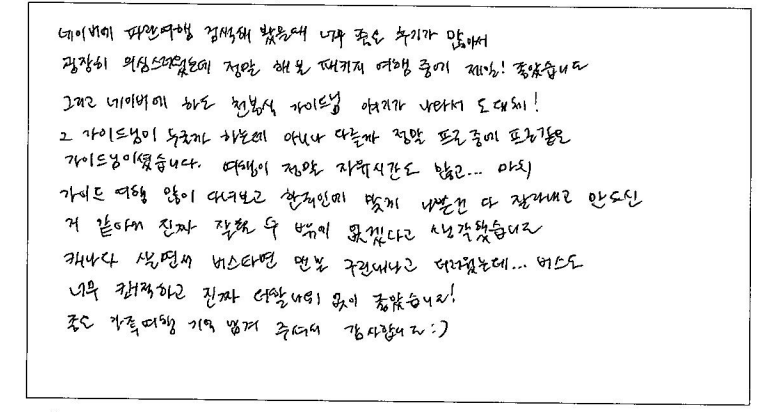 네이버에 파란여행 검색해 봤을때 너무 좋은 후기가 많아서
굉장히 의심스러웠는데 정말 해본 패키지 여행 중에 제일! 좋았습니다
그리고 네이버에 하도 천봉식 가이드님 얘기가 나와서 도대체!
그 가이드님이 누굴까 하는데 아니나 다를까 정말 프로 중에 프로같은
가이드님이셨습니다. 여행이 정말 자유시간도 많고... 마치
가이드 여행 많이 다녀보고 한국인에 맞게 나쁜건 다 잘라내고 만드신
거 같아서 진짜 잘할 수 밖에 없겠다고 생각했습니다
캐나다 살면서 버스타면 맨날 구린내나고 더러웠는데... 버스도
너무 쾌적하고 진짜 더할나위 없이 좋았습니다!
좋은 가족여행 기억 남겨 주셔서 감사합니다 :)